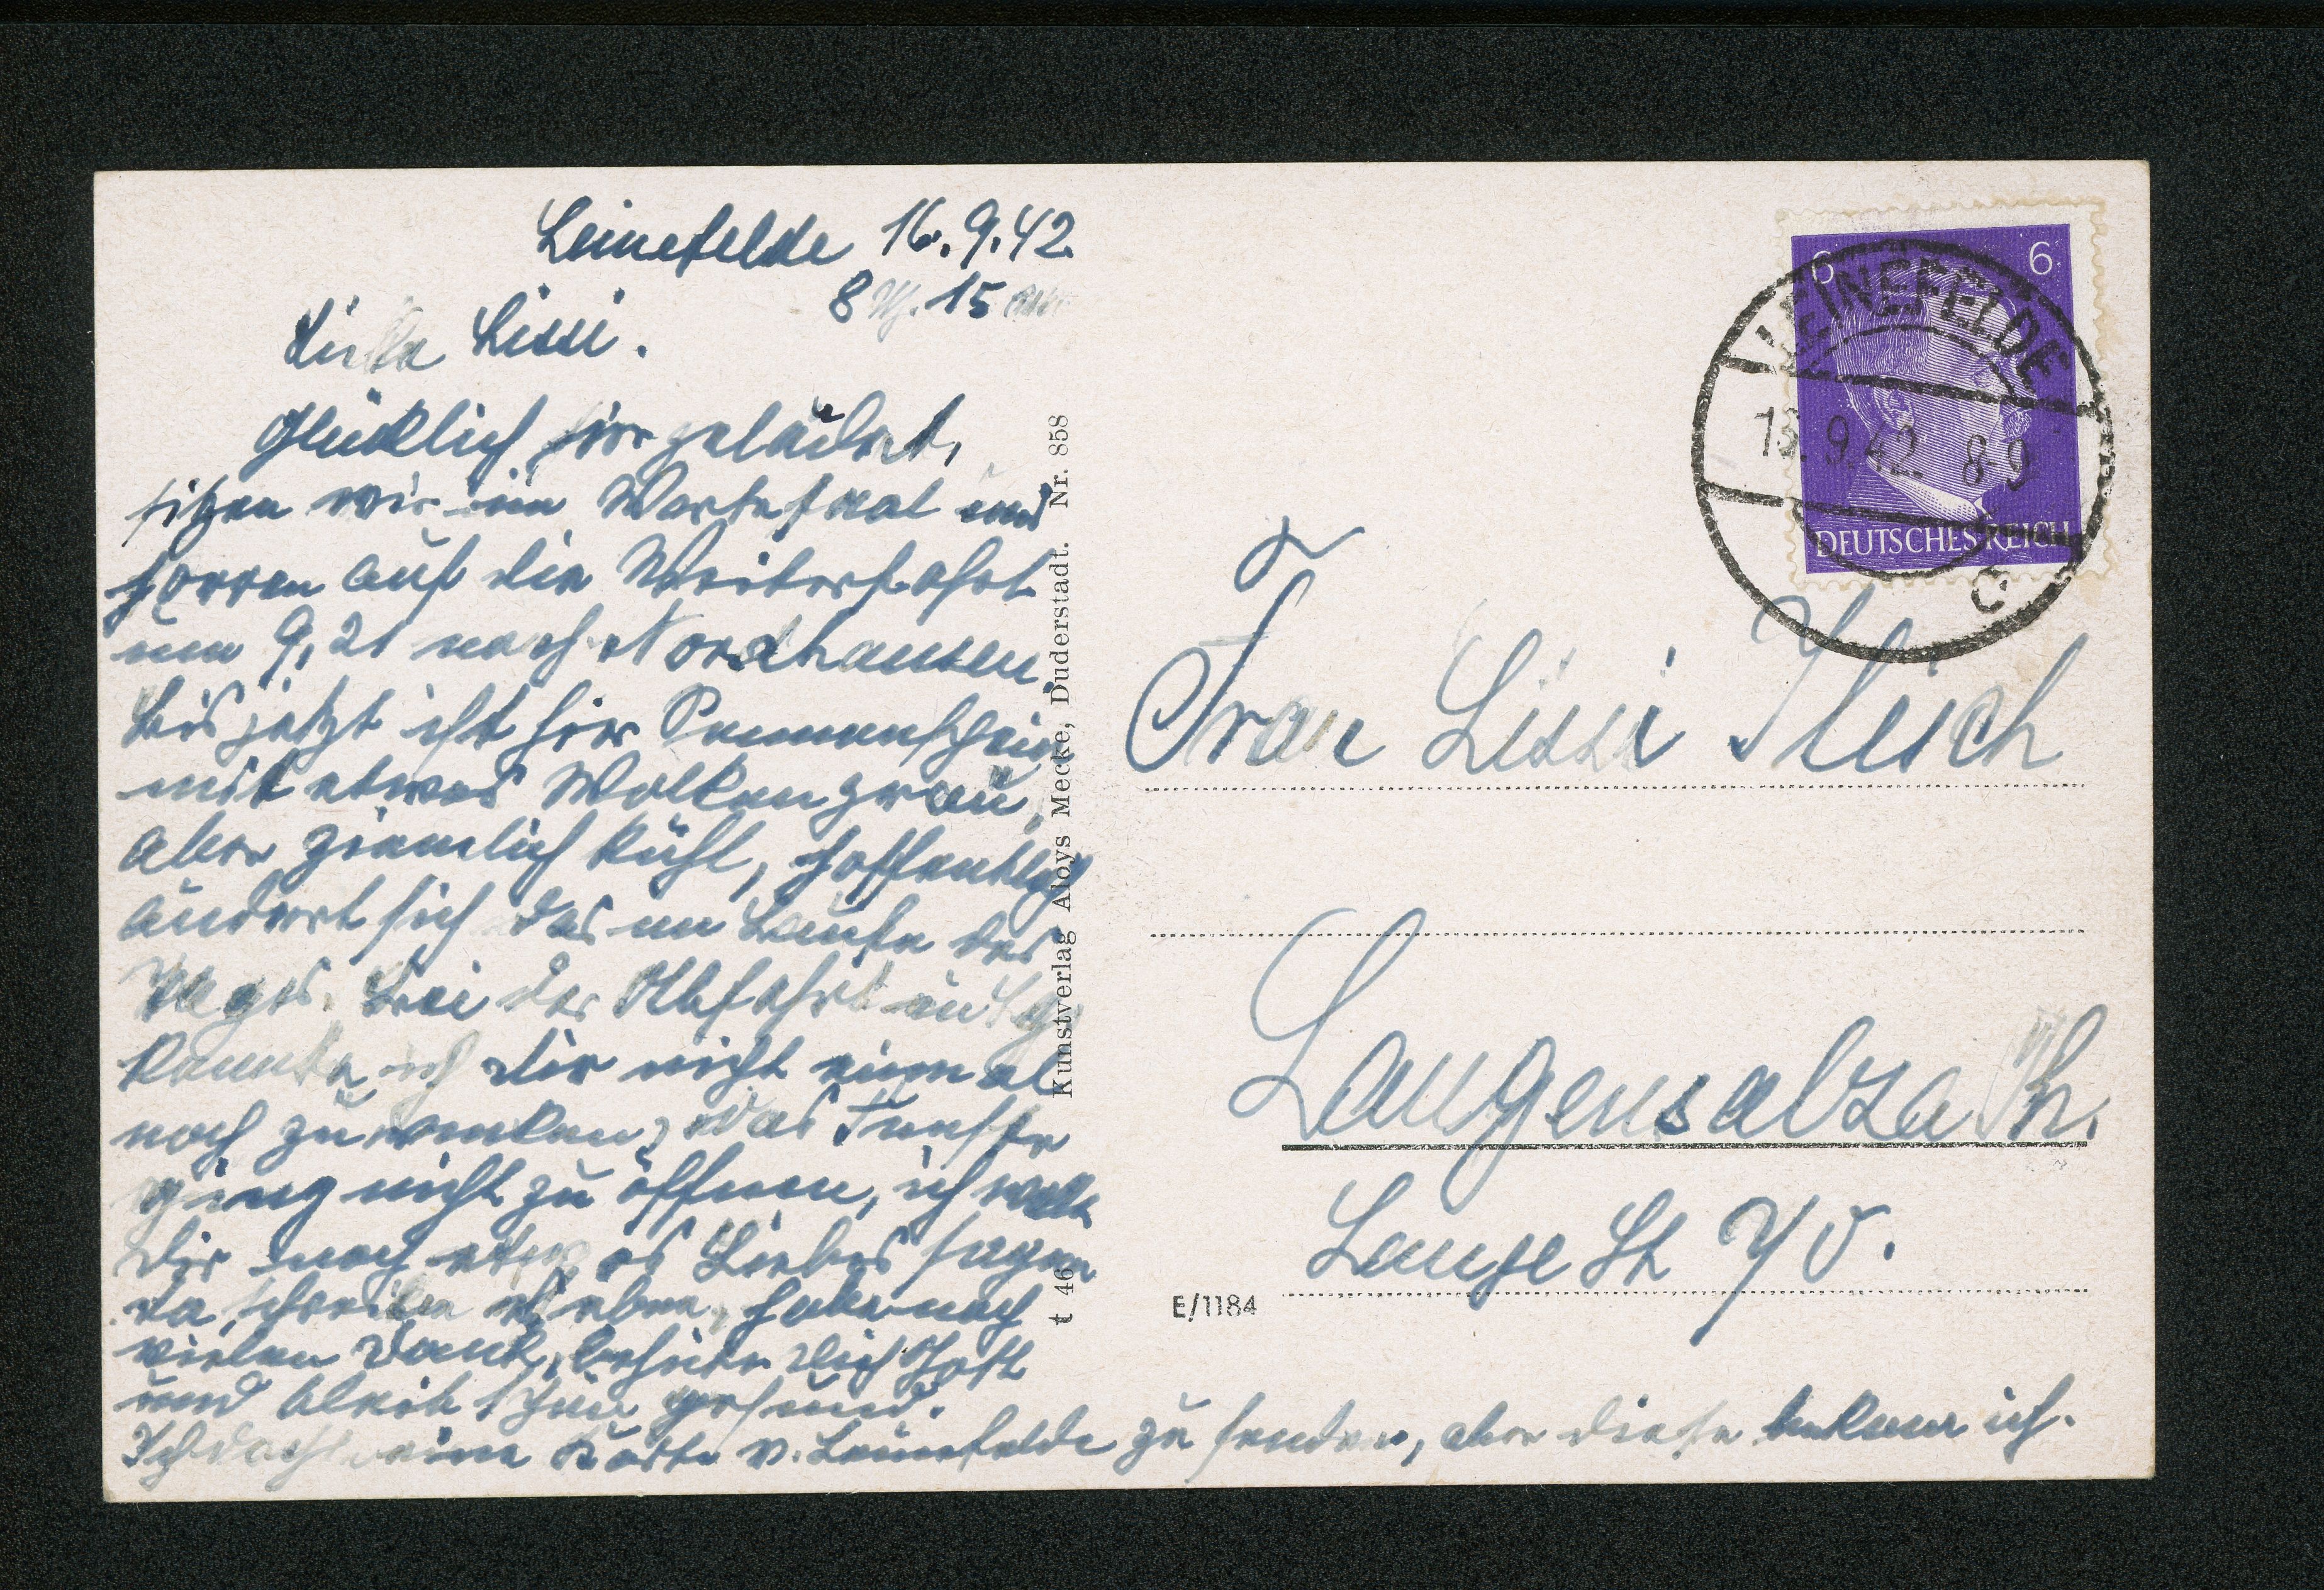 Leinefelde 16.9.42
8 15
Liebe Lissi.
Glücklich hier gelandet,
sitzen wir im Wartesaal und
harren auf die Weiterfahrt
um 9,21 nach Nordhausen.
Bis jetzt ist hier Sonnenschein
mit etwas Wolkengrau,
aber ziemlich kühl, hoffentlich
ändert sich das im Laufe des
Tages. Bei der Abfahrt
konnte ich dir nicht einmal
noch zu winken, das Fenster
ging nicht zu öffnen, ich wollt
Dir noch etwas Liebes sagen
da eben, habe noch
vielen Dank, behüte Dich Gott
und bleib schön gesund.
Ich dacht eine Karte v. Leinefelde zu senden, aber diese bekam ich.
t 46 Kunstverlag Aloys Mecke, Duderstadt. Nr. 858
6 6
DEUTSCHES REICH
LEINEFELDE
9.42. 8-9
c
Frau Lissi
Langensalza Th.
Lange St
E/1184